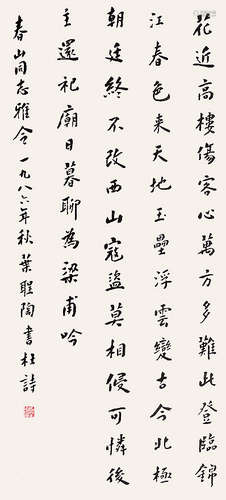 花近高樓傷客心萬方多難此登臨錦
江春色来天地玉壘浮雲變古今北極
朝廷終不改西山寇盜莫相侵可憐後
主還祀廟日暮聊為梁甫吟
春山同志雅令 一九八六年秋葉聖陶書杜詩